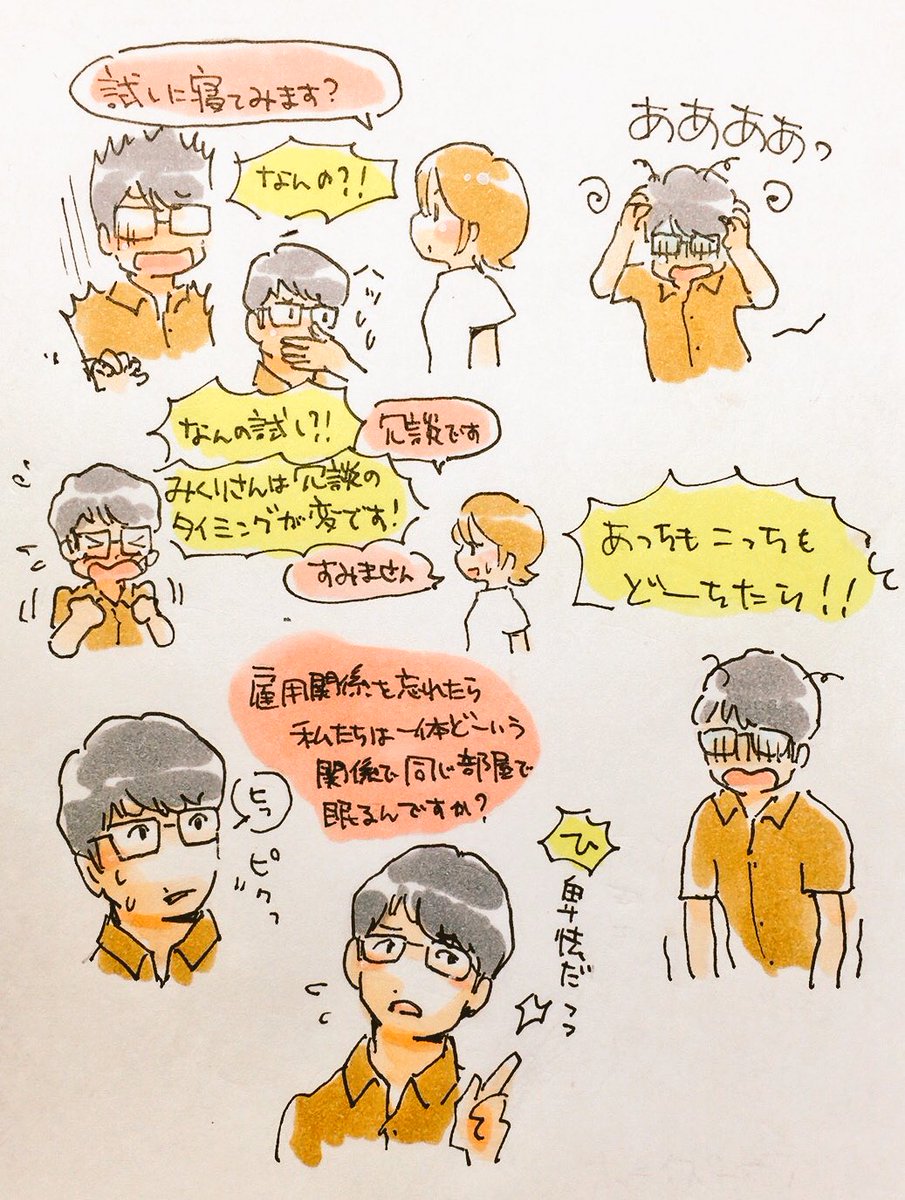 試しに寝てみます?
なんの?!
ハッ
ああああっ
なんの試し?!
冗談です
みくりさんは冗談の
タイミングが変です!
すみません
あっちもこっちも
どーちたら!!
雇用関係を忘れたら
私たちは一体どーいう
関係で同じ部屋で
眠るんですか?
ヒッ
ピクッ
ひ
卑怯だっっ